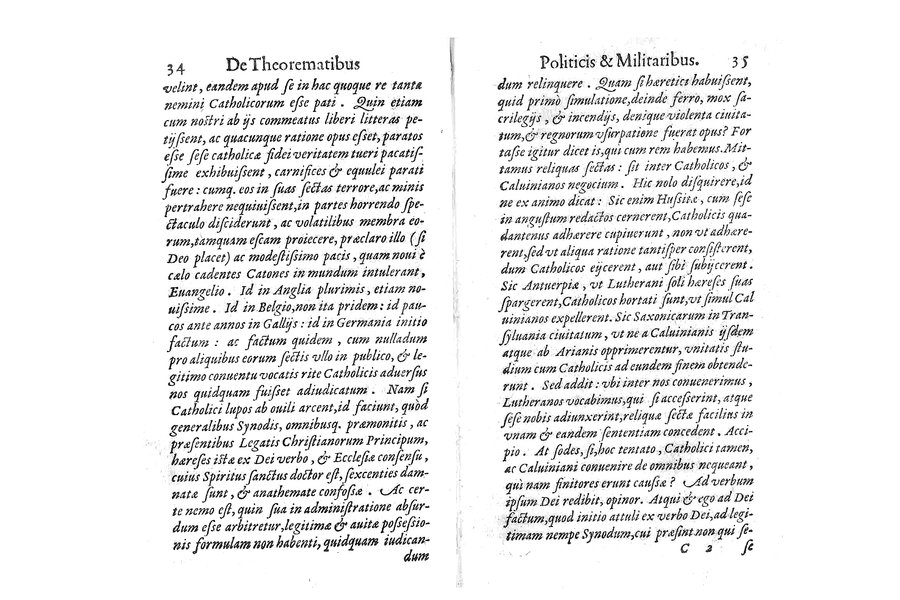 34 De Theorematibus
velint, eandem apud se in hac quoque re tantæ
nemini Catholicorum esse pati . Quin etiam
cum nostri ab ijs commeatus liberi litteras pe-
tijssent, ac quacunque ratione opus esset, paratos
esse sese catholicæ fidei veritatem tueri pacatis-
sime exhibuissent , carnifices & equulei parati
fuere : cumq. eos in suas sectas terrore,ac minis
pertrahere nequiuissent,in partes horrendo spe-
ctaculo disciderunt , ac volatilibus membra eo-
rum,tamquam escam proiecere, præclaro illo ( si
Deo placet) ac modestissimo pacis , quam noui è
cælo cadentes Catones in mundum intulerant,
Euangelio . Id in Anglia plurimis , etiam no-
uissime . Id in Belgio,non ita pridem : id pau-
cos ante annos in Gallijs : id in Germania initio
factum : ac factum quidem , cum nulladum
pro aliquibus eorum sectis vllo in publico, & le-
gitimo conuentu vocatis rite Catholicis aduersus
nos quidquam fuisset adiudicatum . Nam si
Catholici lupos ab ouili arcent,id faciunt, quòd
generalibus Synodis, omnibusq. præmonitis , ac
præsentibus Legatis Christianorum Principum,
hæreses istæ ex Dei verbo , & Ecclesiæ consensu,
cuius Spiritus sanctus doctor est, sexcenties dam-
natæ sunt , & anathemate confossæ . Ac cer-
te nemo est, quin sua in administratione absur-
dum esse arbitretur,legitimæ & auitæ possessio-
nis formulam non habenti, quidquam iudican-
dum
Politicis & Militaribus. 35
dum relinquere . Quam si hæretici habuissent,
quid primò simulatione,deinde ferro, mox sa-
crilegijs , & incendijs, denique violenta ciuita-
tum,& regnorum vsurpatione fuerat opus? For
tasse igitur dicet is,qui cum rem habemus.Mit-
tamus reliquas sectas : sit inter Catholicos , &
Caluinianos negocium . Hic nolo disquirere,id
ne ex animo dicat : Sic enim Hussitæ , cum sese
in angustum redactos cernerent,Catholicis qua-
dantenus adhærere cupiuerunt , non vt adhære-
rent,sed vt aliqua ratione tantisper consisterent,
dum Catholicos eijcerent, aut sibi subijcerent .
Sic Antuerpiæ , vt Lutherani soli hæreses suas
spargerent,Catholicos hortati sunt,vt simul Cal
uinianos expellerent. Sic Saxonicarum in Tran-
syluania ciuitatum , vt ne a Caluinianis ijsdem
atque ab Arianis opprimerentur, vnitatis stu-
dium cum Catholicis ad eundem finem obtende-
runt . Sed addit : vbi inter nos conuenerimus ,
Lutheranos vocabimus,qui si accesserint, atque
sese nobis adiunxerint,reliquæ sectæ facilius in
vnam & eandem sententiam concedent . Acci-
pio . At sodes, si,hoc tentato , Catholici tamen,
ac Caluiniani conuenire de omnibus nequeant ,
quì nam finitores erunt caussæ ? Ad verbum
ipsum Dei redibit, opinor. Atqui & ego ad Dei
factum,quod initio attuli ex verbo Dei,ad legi-
timam nempe Synodum,cui præsint non qui se-
C 2 se